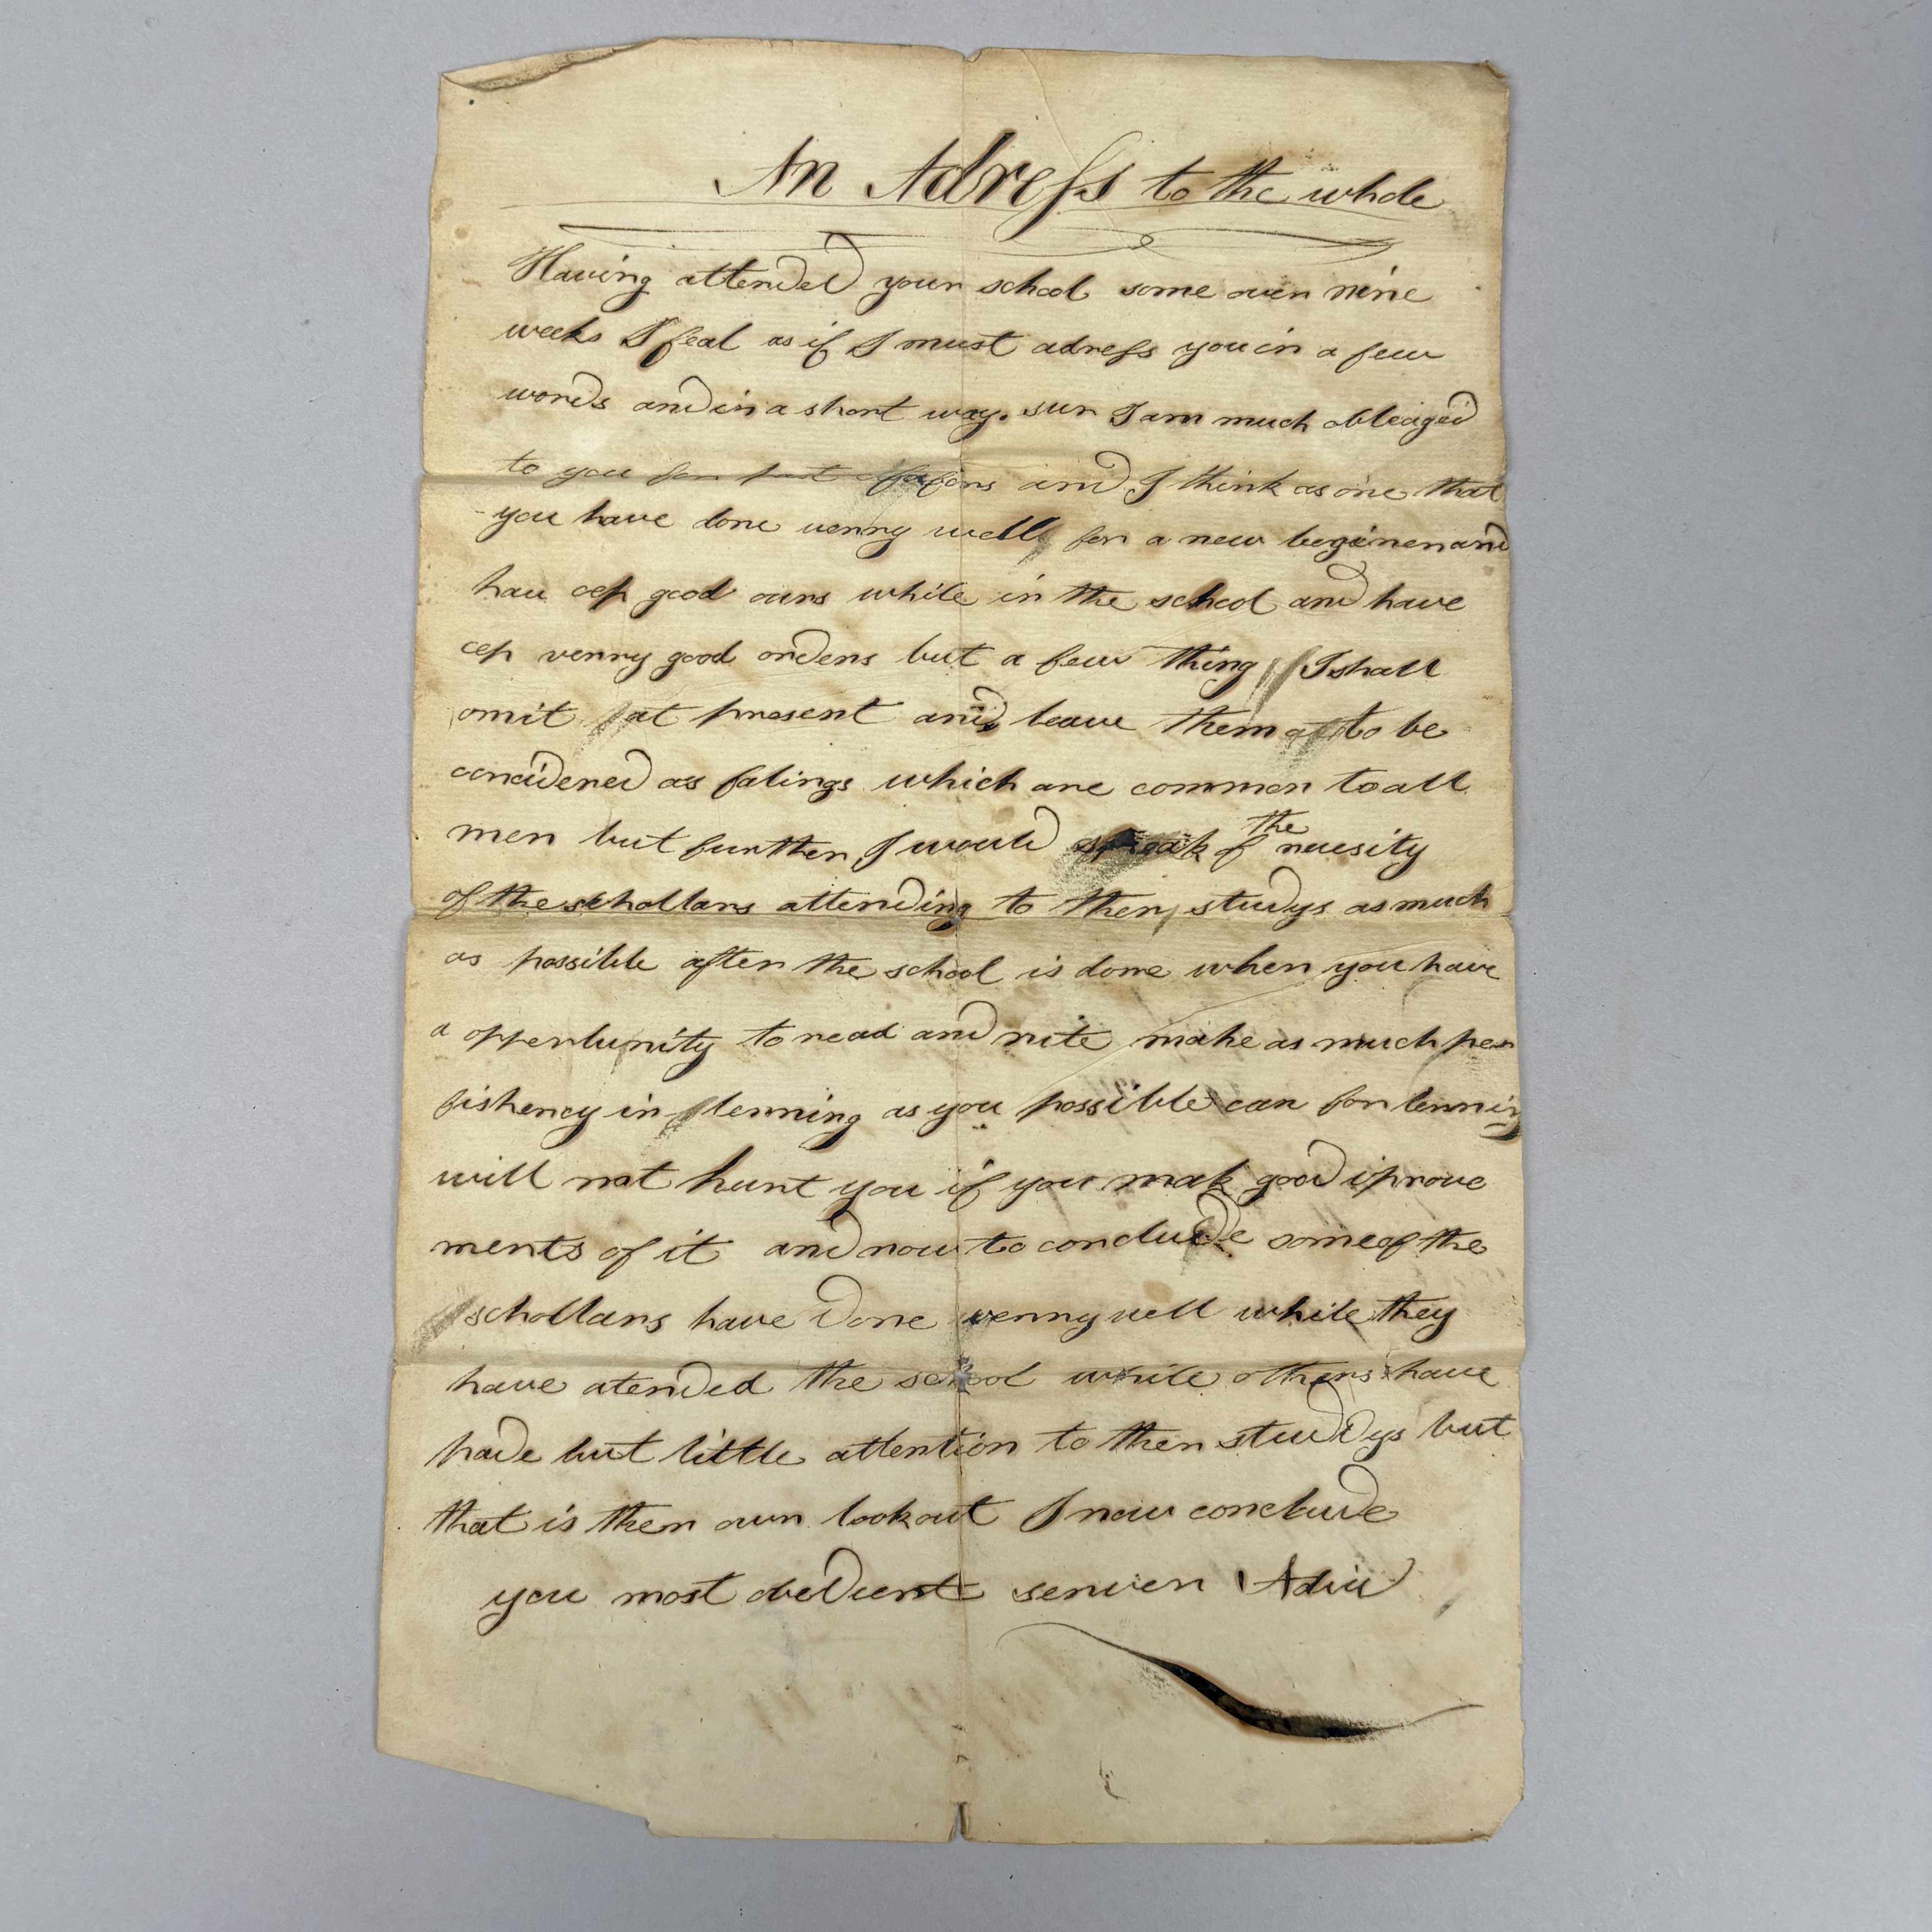 An Adress to the whole
Having attended your school some over nine
weeks I feal as if I must adress you in a few
words and in a short way. sur I am much obleaged
to you for past and I think as one that
you have done verry well for a new beginer and
hav cep good ours while in the school and have
cep verry good orders but a few thing I shall
omit at present and leave them to be
concidered as falings which are common to all
men but further I would speak of the necesity
of the schollars attending to ther studys as much
as possible after the school is done when you have
a oppertunity to read and rite make as much per
fishency in lerning as you possible can for lerning
will not hurt you if you mak good iprove
ments of it and now to conclude some of the
schollars have done verry well while they
have atended the school while others have
hade but little attention to ther studys but
that is ther own lookout I now conclude
you most obedient server Adiu